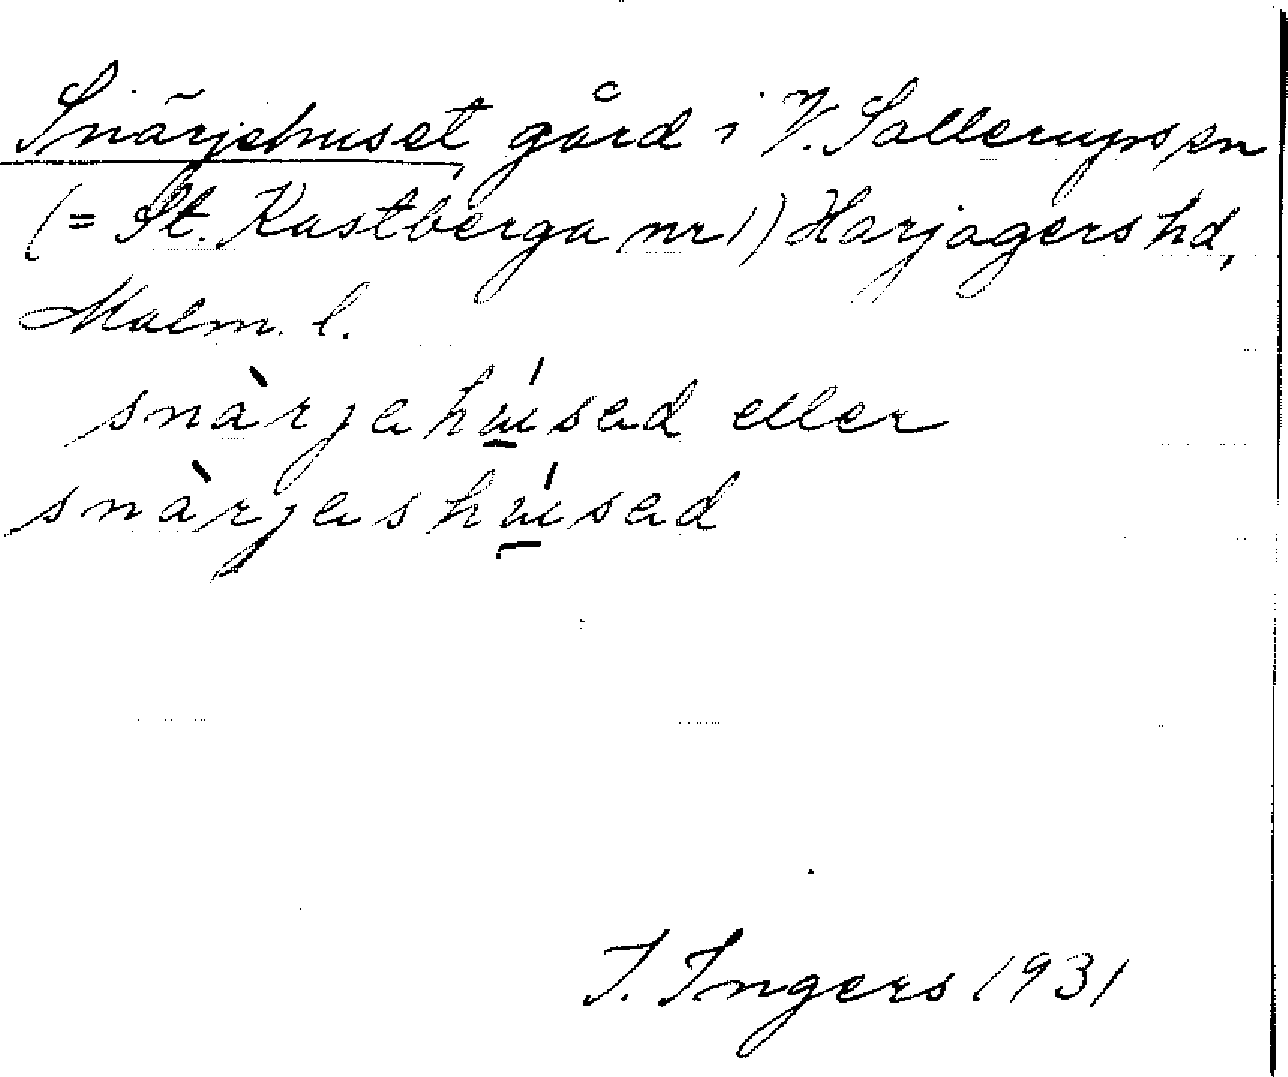 Snärjehuset, gård i V. Sallerups sn
(= St. Kastberga nr 1) Harjagers hd,
Malm. l.
snàrjahúsad eller
snàrjashúsad
I. Ingers 1931